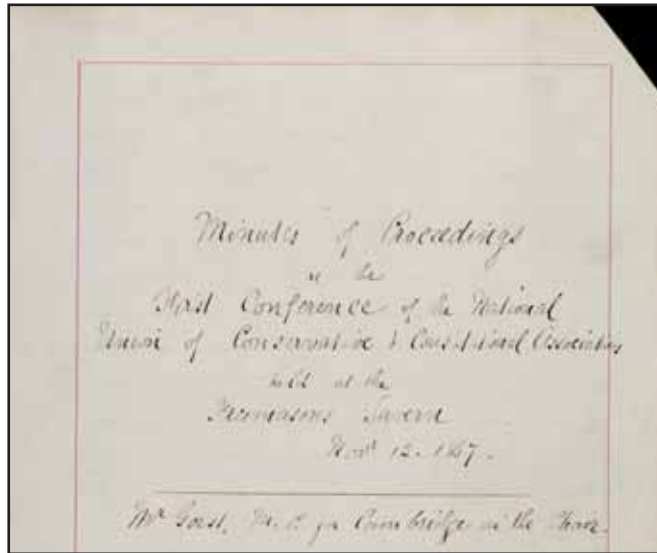 Minutes of Proceedings
at the
First Conference of the National
Union of Conservative & Constitutional Associations
held at the
Freemasons Tavern
Novr 12. 1867.
Mr Gorst, M.P. for Cambridge in the Chair.